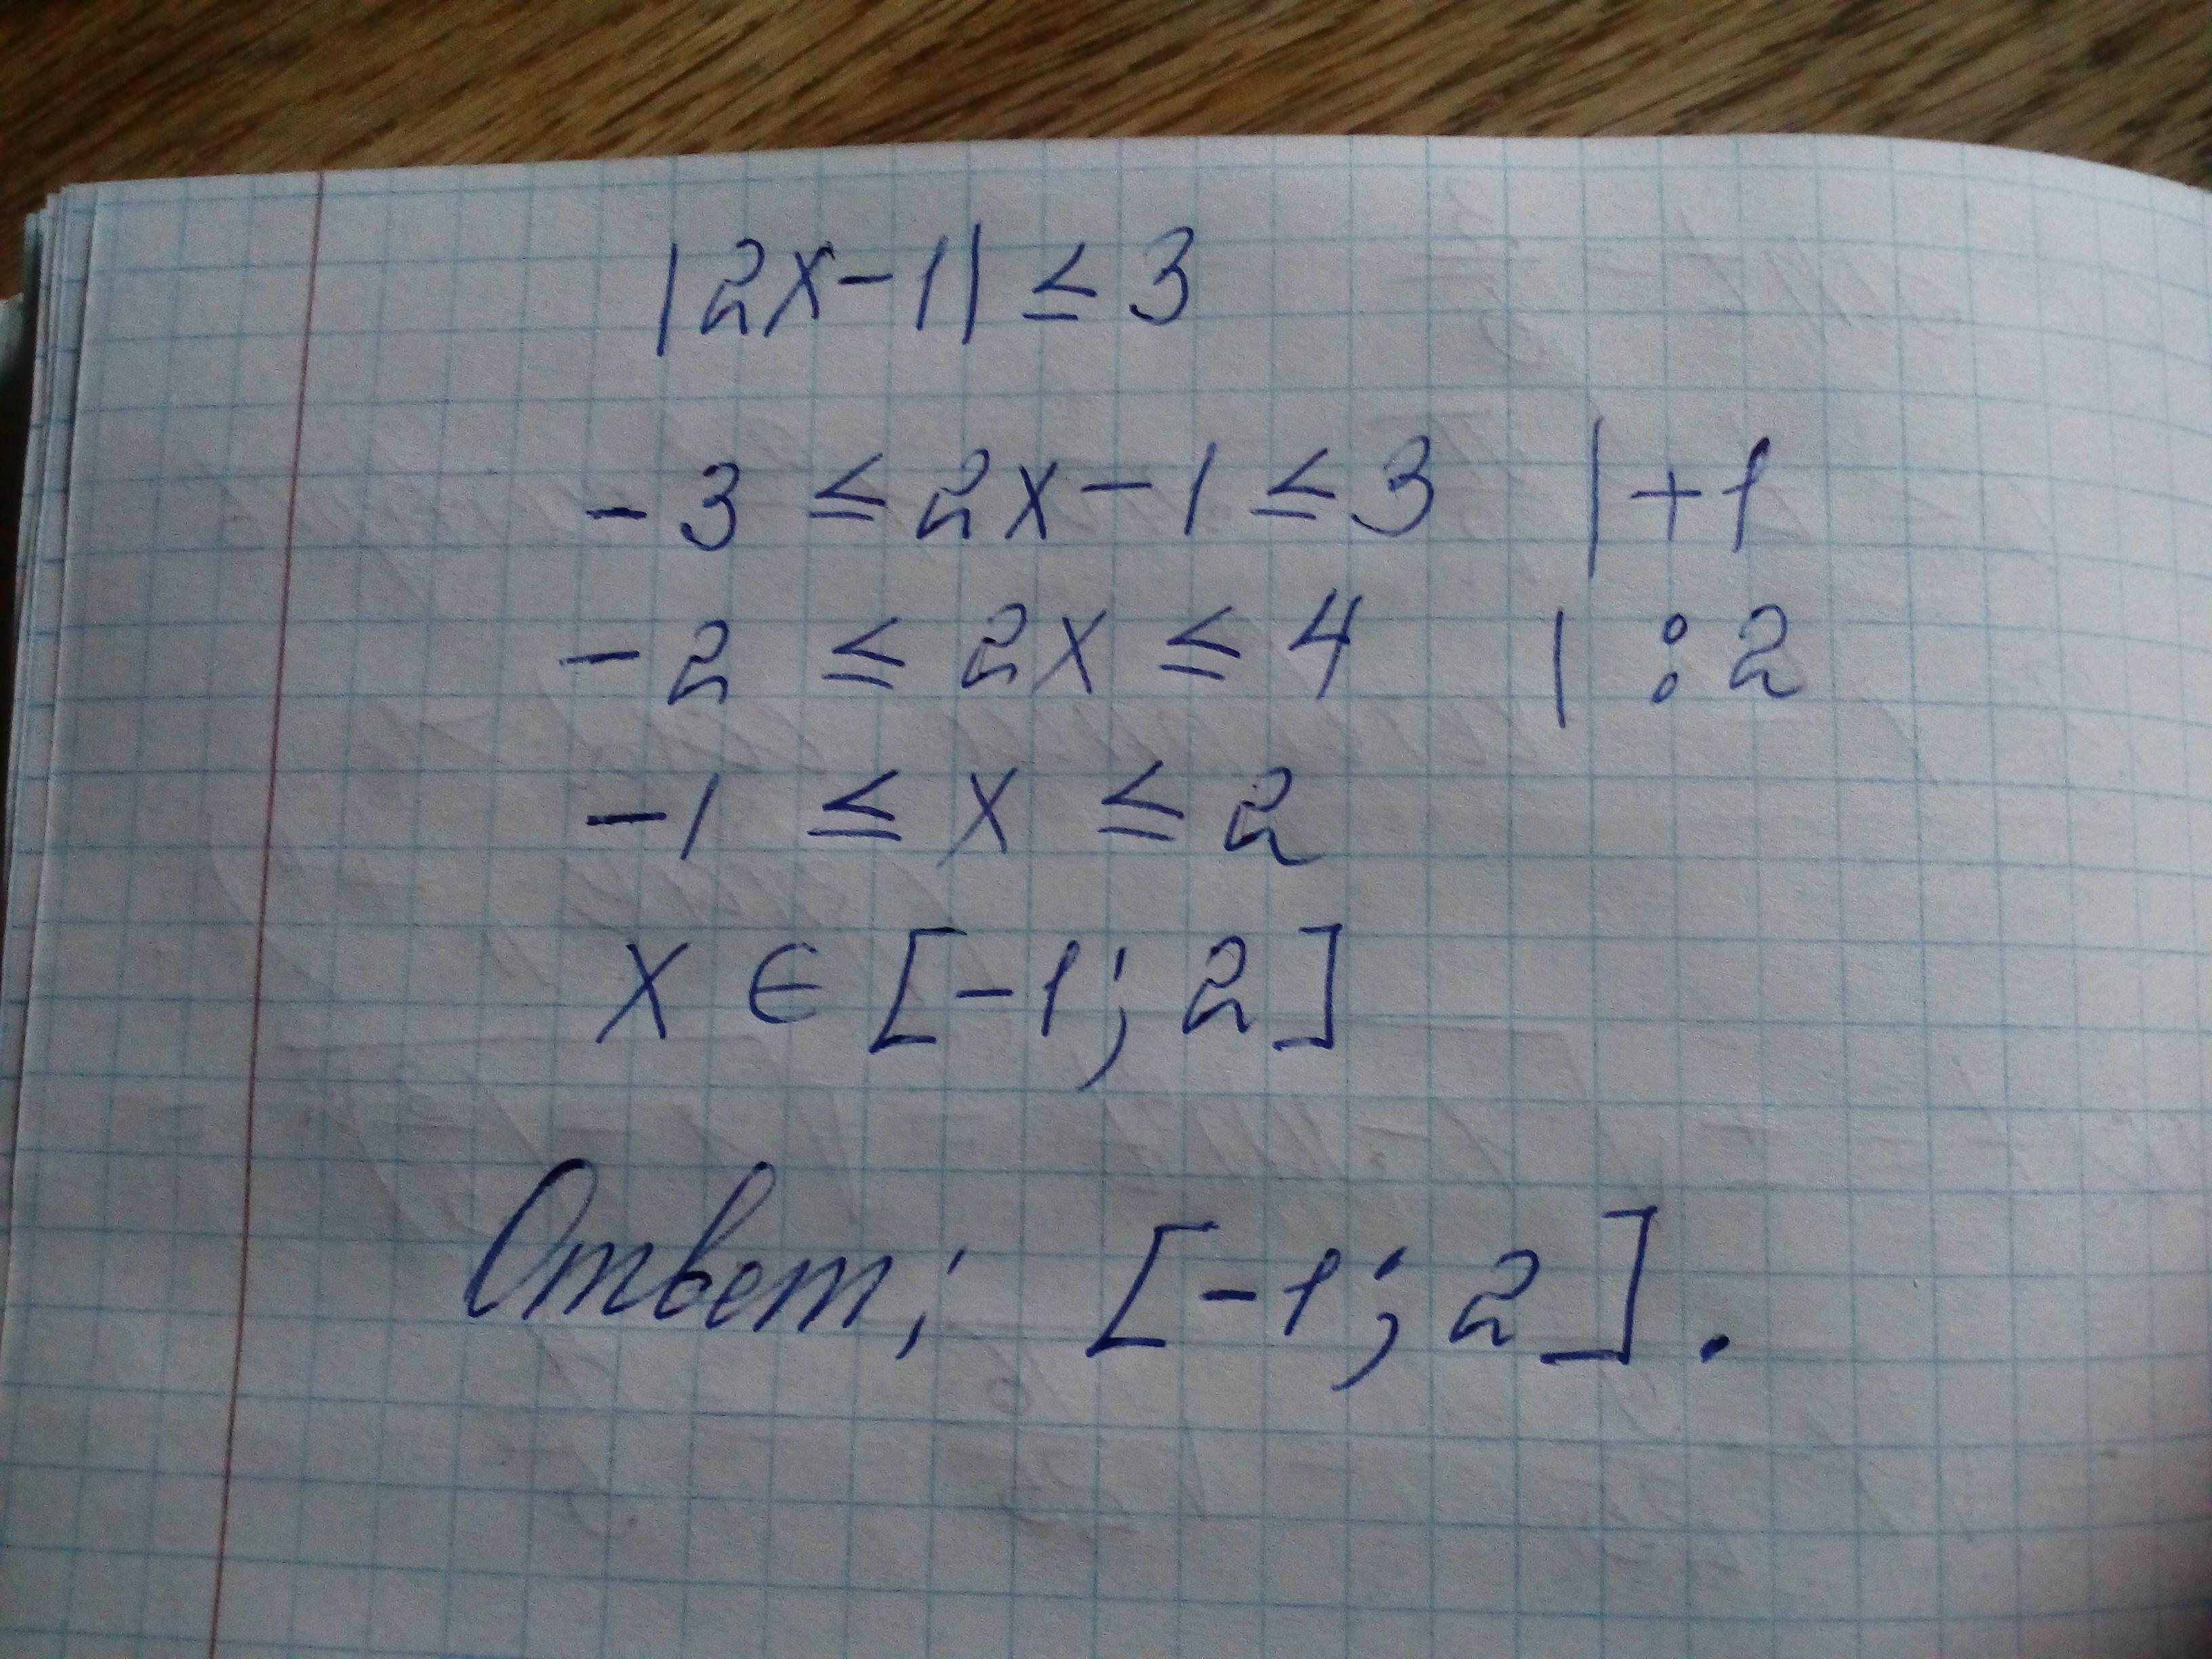 |2x-1| ≤ 3
-3 ≤ 2x-1 ≤ 3 |+1
-2 ≤ 2x ≤ 4 | :2
-1 ≤ x ≤ 2
x ∈ [-1; 2]
Ответ; [-1; 2].